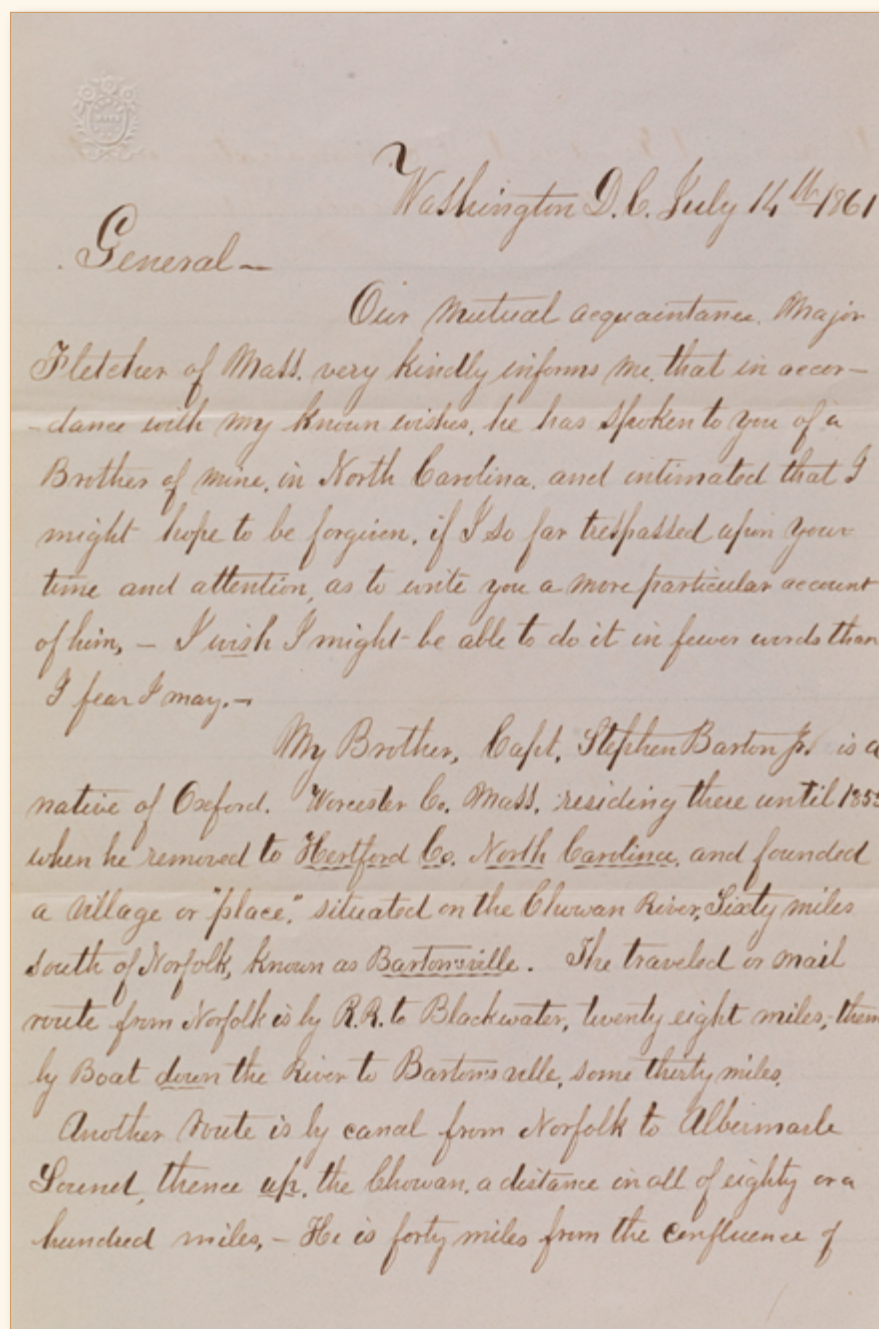 Washington D.C. July 14th 1861
General —
Our mutual acquaintance. Major
Fletcher of Mass. very kindly informs me, that in accor-
-dance with my known wishes, he has spoken to you of a
Brother of mine, in North Carolina, and intimated that I
might hope to be forgiven, if I so far trespassed upon your
time and attention, as to write you a more particular account
of him, — I wish I might be able to do it in fewer words than
I fear I may. —
My Brother, Capt. Stephen Barton Jr. is a
native of Oxford. Worcester Co. Mass. residing there until
when he removed to Hertford Co. North Carolina, and founded
a village or "place", situated on the Chowan River, Sixty miles
south of Norfolk, known as Bartonsville. The traveled or mail
route from Norfolk is by R.R. to Blackwater, twenty eight miles,
by Boat down the River to Bartonsville, some thirty miles.
Another route is by canal from Norfolk to Albermarle
Sound, thence up, the Chowan, a distance in all of eighty or a
hundred miles, — He is forty miles from the confluence of